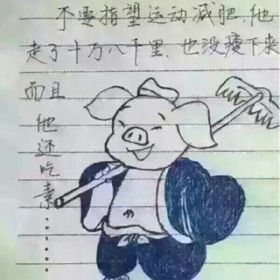 不要指望运动减肥,他
走了十万八千里.也没瘦下来
而且
他
还
吃
素......